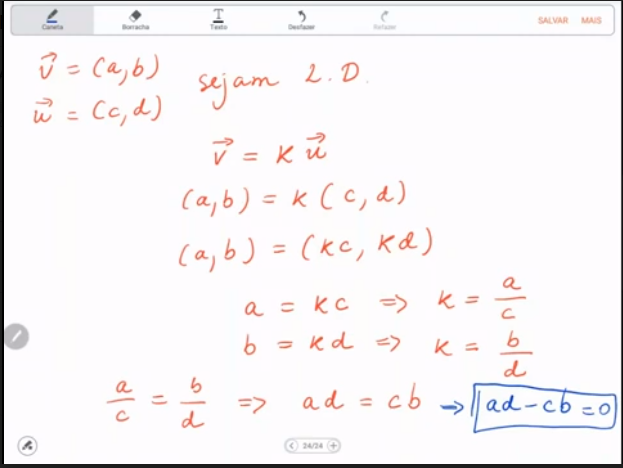 Caneta Borracha Texto Desfazer Refazer SALVAR MAIS
v⃗ = (a,b)
sejam L.D.
u⃗ = (c,d)
v⃗ = K u⃗
(a,b) = K (c,d)
(a,b) = (Kc, Kd)
a = Kc => K = a/c
b = Kd => K = b/d
a/c = b/d => ad = cb → ad - cb = 0
24/24